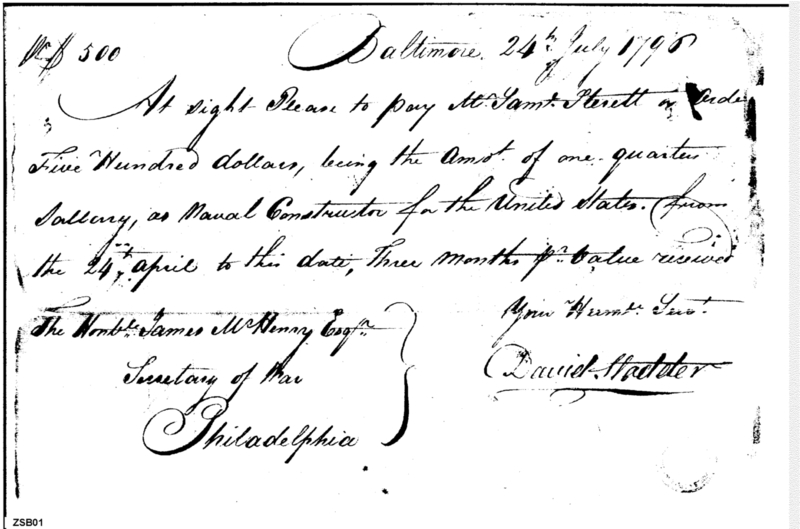 Dr $ 500 Baltimore. 24th July 1796
At sight Please to pay Mr. Saml. Sterett or Order
Five Hundred dollars, being the Amot. of one quarters
Sallery, as Naval Constructor for the United States. from
the 24th April to this date, Three months pr. Value received
Your Humle. Servt.
David Stodder
The Honble. James McHenry Esqr.
Secretary of War
Philadelphia
ZSB01